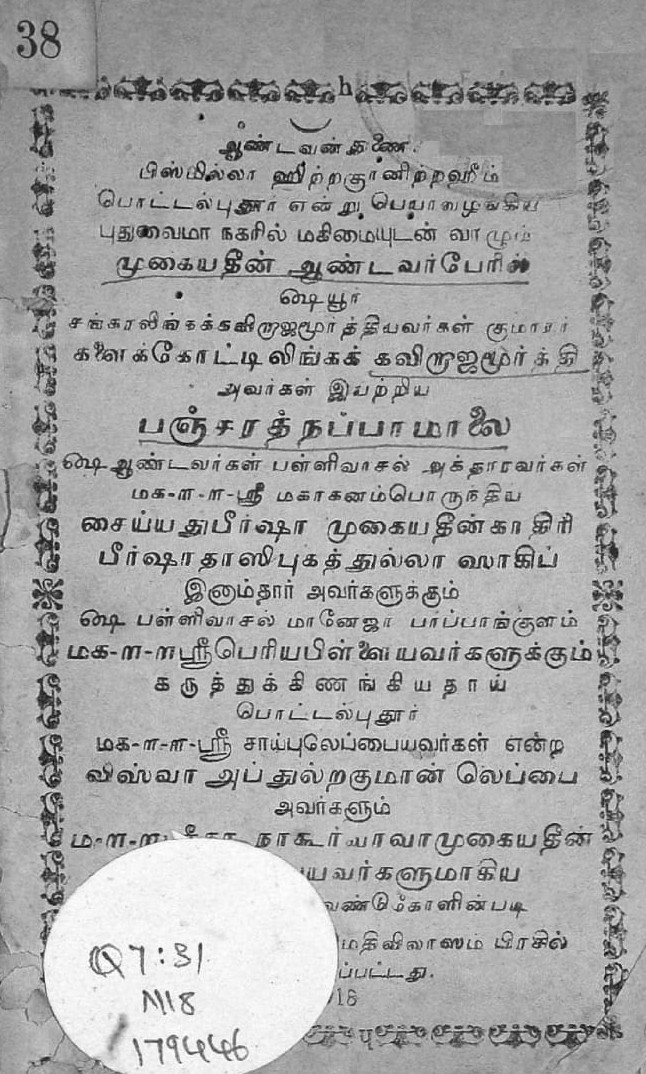 38
h
ஆண்டவன் துணை.
பிஸ்மில்லா ஹிற்றகுமானிற்றஹீம்
பொட்டல்புதூர் என்று பெயர்வழங்கிய
புதுவைமா நகரில் மகிமையுடன் வாழும்
முகையதீன் ஆண்டவர்பேரில்
ஷெயூர்
சங்கரலிங்கக்கவிராஜமூர்த்தியவர்கள் குமாரர்
களைக்கோட்டிலிங்கக் கவிராஜமூர்த்தி
அவர்கள் இயற்றிய
பஞ்சரத்நப்பாமாலை
ஷெ ஆண்டவர்கள் பள்ளிவாசல் அக்தாரவர்கள்
மக-ா-ா-ஸ்ரீ மகாகனம்பொருந்திய
சைய்யதுபீர்ஷா முகையதீன்காதிரி
பீர்ஷாதாஸிபுகத்துல்லா ஸாகிப்
இனாம்தார் அவர்களுக்கும்
ஷெ பள்ளிவாசல் மானேஜர் பார்ப்பாங்குளம்
மக-ா-ா-ஸ்ரீ பெரியபிள்ளையவர்களுக்கும்
கருத்துக்கிணங்கியதாய்
பொட்டல்புதூர்
மக-ா-ா-ஸ்ரீ சாய்புலெப்பையவர்கள் என்ற
விஸ்வா அப்துல்றகுமான் லெப்பை
அவர்களும்
நாகூர்பாவாமுகையதீன்
யவர்களுமாகிய
வேண்டுகோளின்படி
மதிவிலாஸம் பிரசில்
ப்பட்டது.
18
Q7:31
M18
179446